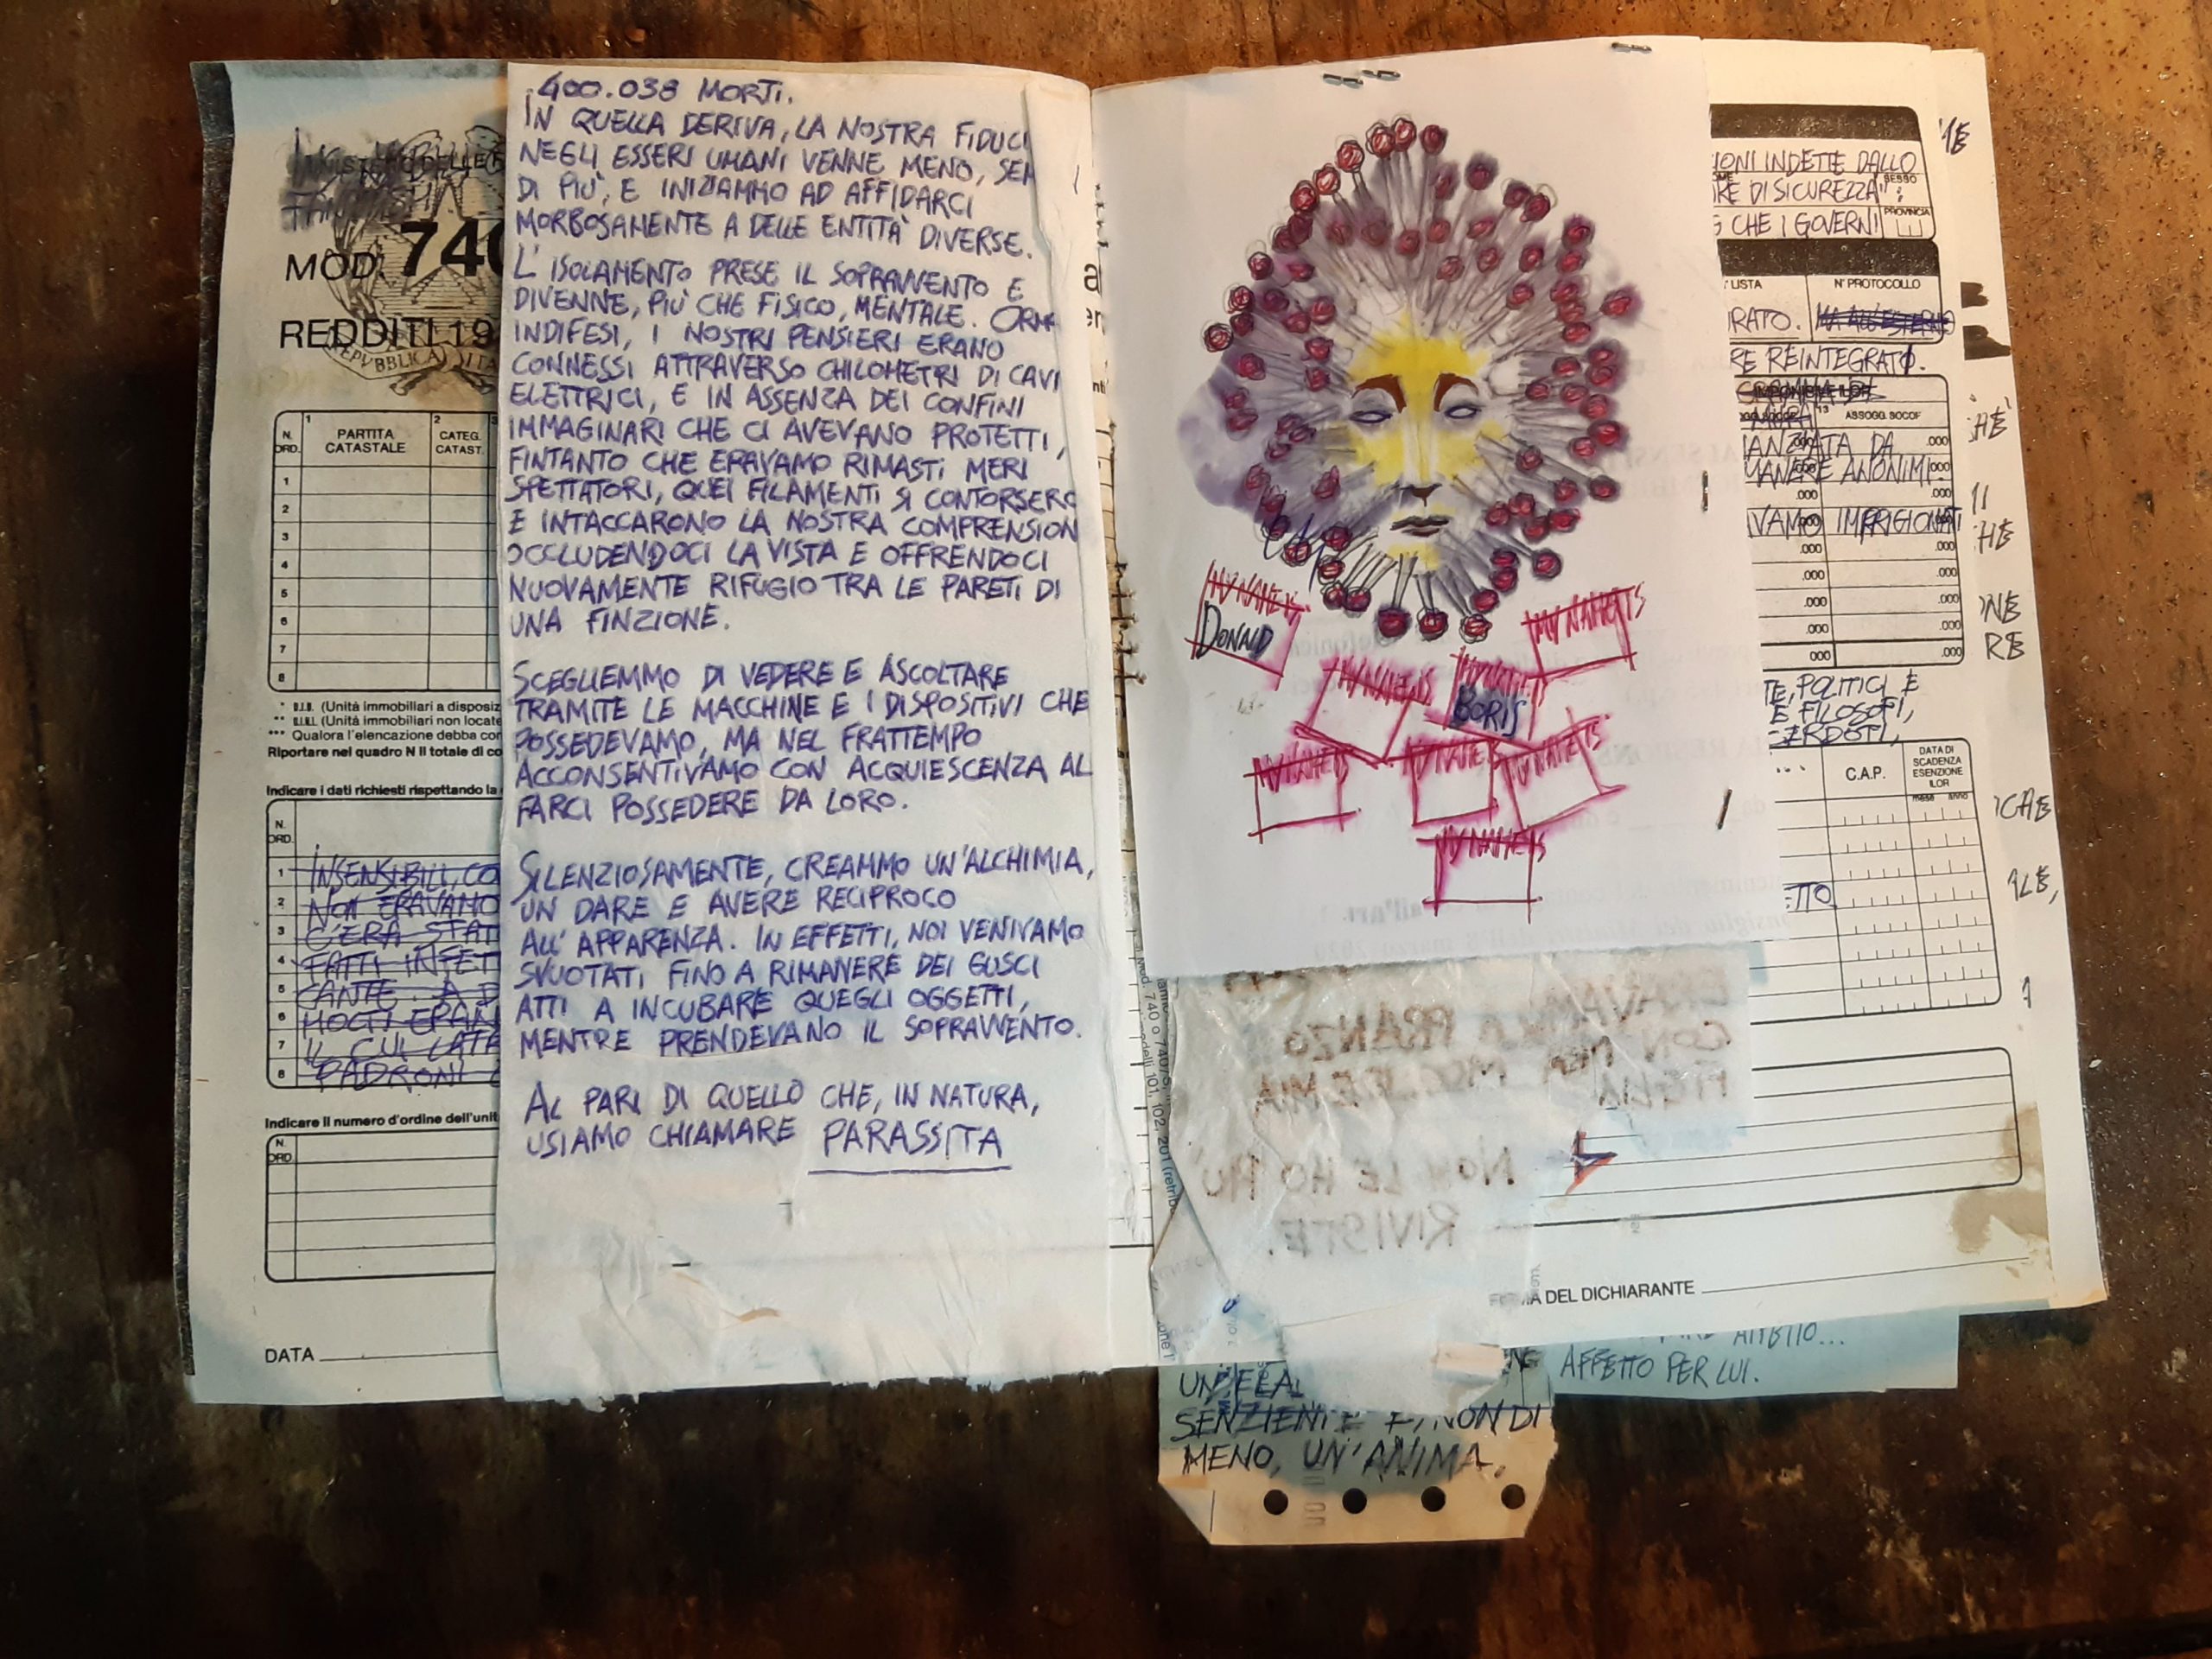 400.038 MORTI.
IN QUELLA DERIVA, LA NOSTRA FIDUCI
NEGLI ESSERI UMANI VENNE MENO, SEM
DI PIÙ, E INIZIAMMO AD AFFIDARCI
MORBOSAMENTE A DELLE ENTITÀ DIVERSE.
L'ISOLAMENTO PRESE IL SOPRAVVENTO E
DIVENNE, PIÙ CHE FISICO, MENTALE. ORMA
INDIFESI, I NOSTRI PENSIERI ERANO
CONNESSI ATTRAVERSO CHILOMETRI DI CAVI
ELETTRICI, E IN ASSENZA DEI CONFINI
IMMAGINARI CHE CI AVEVANO PROTETTI,
FINTANTO CHE ERAVAMO RIMASTI MERI
SPETTATORI, QUEI FILAMENTI SI CONTORSERO
E INTACCARONO LA NOSTRA COMPRENSION
OCCLUDENDOCI LA VISTA E OFFRENDOCI
NUOVAMENTE RIFUGIO TRA LE PARETI DI
UNA FINZIONE.
SCEGLIEMMO DI VEDERE E ASCOLTARE
TRAMITE LE MACCHINE E I DISPOSITIVI CHE
POSSEDEVAMO, MA NEL FRATTEMPO
ACCONSENTIVAMO CON ACQUIESCENZA AL
FARCI POSSEDERE DA LORO.
SILENZIOSAMENTE, CREAMMO UN'ALCHIMIA,
UN DARE E AVERE RECIPROCO
ALL'APPARENZA. IN EFFETTI, NOI VENIVAMO
SVUOTATI FINO A RIMANERE DEI GUSCI
ATTI A INCUBARE QUEGLI OGGETTI,
MENTRE PRENDEVANO IL SOPRAVVENTO.
AL PARI DI QUELLO CHE, IN NATURA,
USIAMO CHIAMARE PARASSITA
MOD. 740
REDDITI 19
REPVBBLICA ITA
N. ORD.
1 PARTITA CATASTALE
2 CATEG. CATAST.
1
2
3
4
5
6
7
8
* U.I.D. (Unità immobiliari a disposiz
** U.I.N.L. (Unità immobiliari non locate
*** Qualora l'elencazione debba con
Riportare nel quadro N il totale di co
Indicare i dati richiesti rispettando la
N. ORD.
1 INSENSIBILI, CO
2 NON ERAVAMO
3 C'ERA STAT
4 FATTI INFET
5 CANTE. A D
6 MOLTI ERAN
7 IL CUI LATR
8 PADRONI
Indicare il numero d'ordine dell'unit
N. ORD
DATA
MY NAME IS
DONALD
MY NAME IS
MY NAME IS
MY NAME IS
BORIS
MY NAME IS
MY NAME IS
MY NAME IS
MY NAME IS
IONI INDETTE DALLO
RE DI SICUREZZA";
SESSO
CHE I GOVERNI
PROVINCIA
LISTA
N° PROTOCOLLO
RATO.
RE REINTEGRATO.
13 ASSOGG. SOCOF
ANZIATA DA
MANERE ANONIMI.
VAMO IMPRIGIONATI
.000
.000
.000
.000
.000
.000
.000
.000
TE, POLITICI E
E FILOSOFI,
CERDOTI,
...
C.A.P.
DATA DI SCADENZA ESENZIONE ILOR
mese anno
ETTO
HE
HE
NE
RE
CHE
ILE,
CON MIA MOGLIE E MIA
FIGLIA
NON LE HO PIÙ
RIVISTE.
FIRMA DEL DICHIARANTE
AFFETTO PER LUI.
SENZIENTE E, NON DI
MENO, UN'ANIMA.